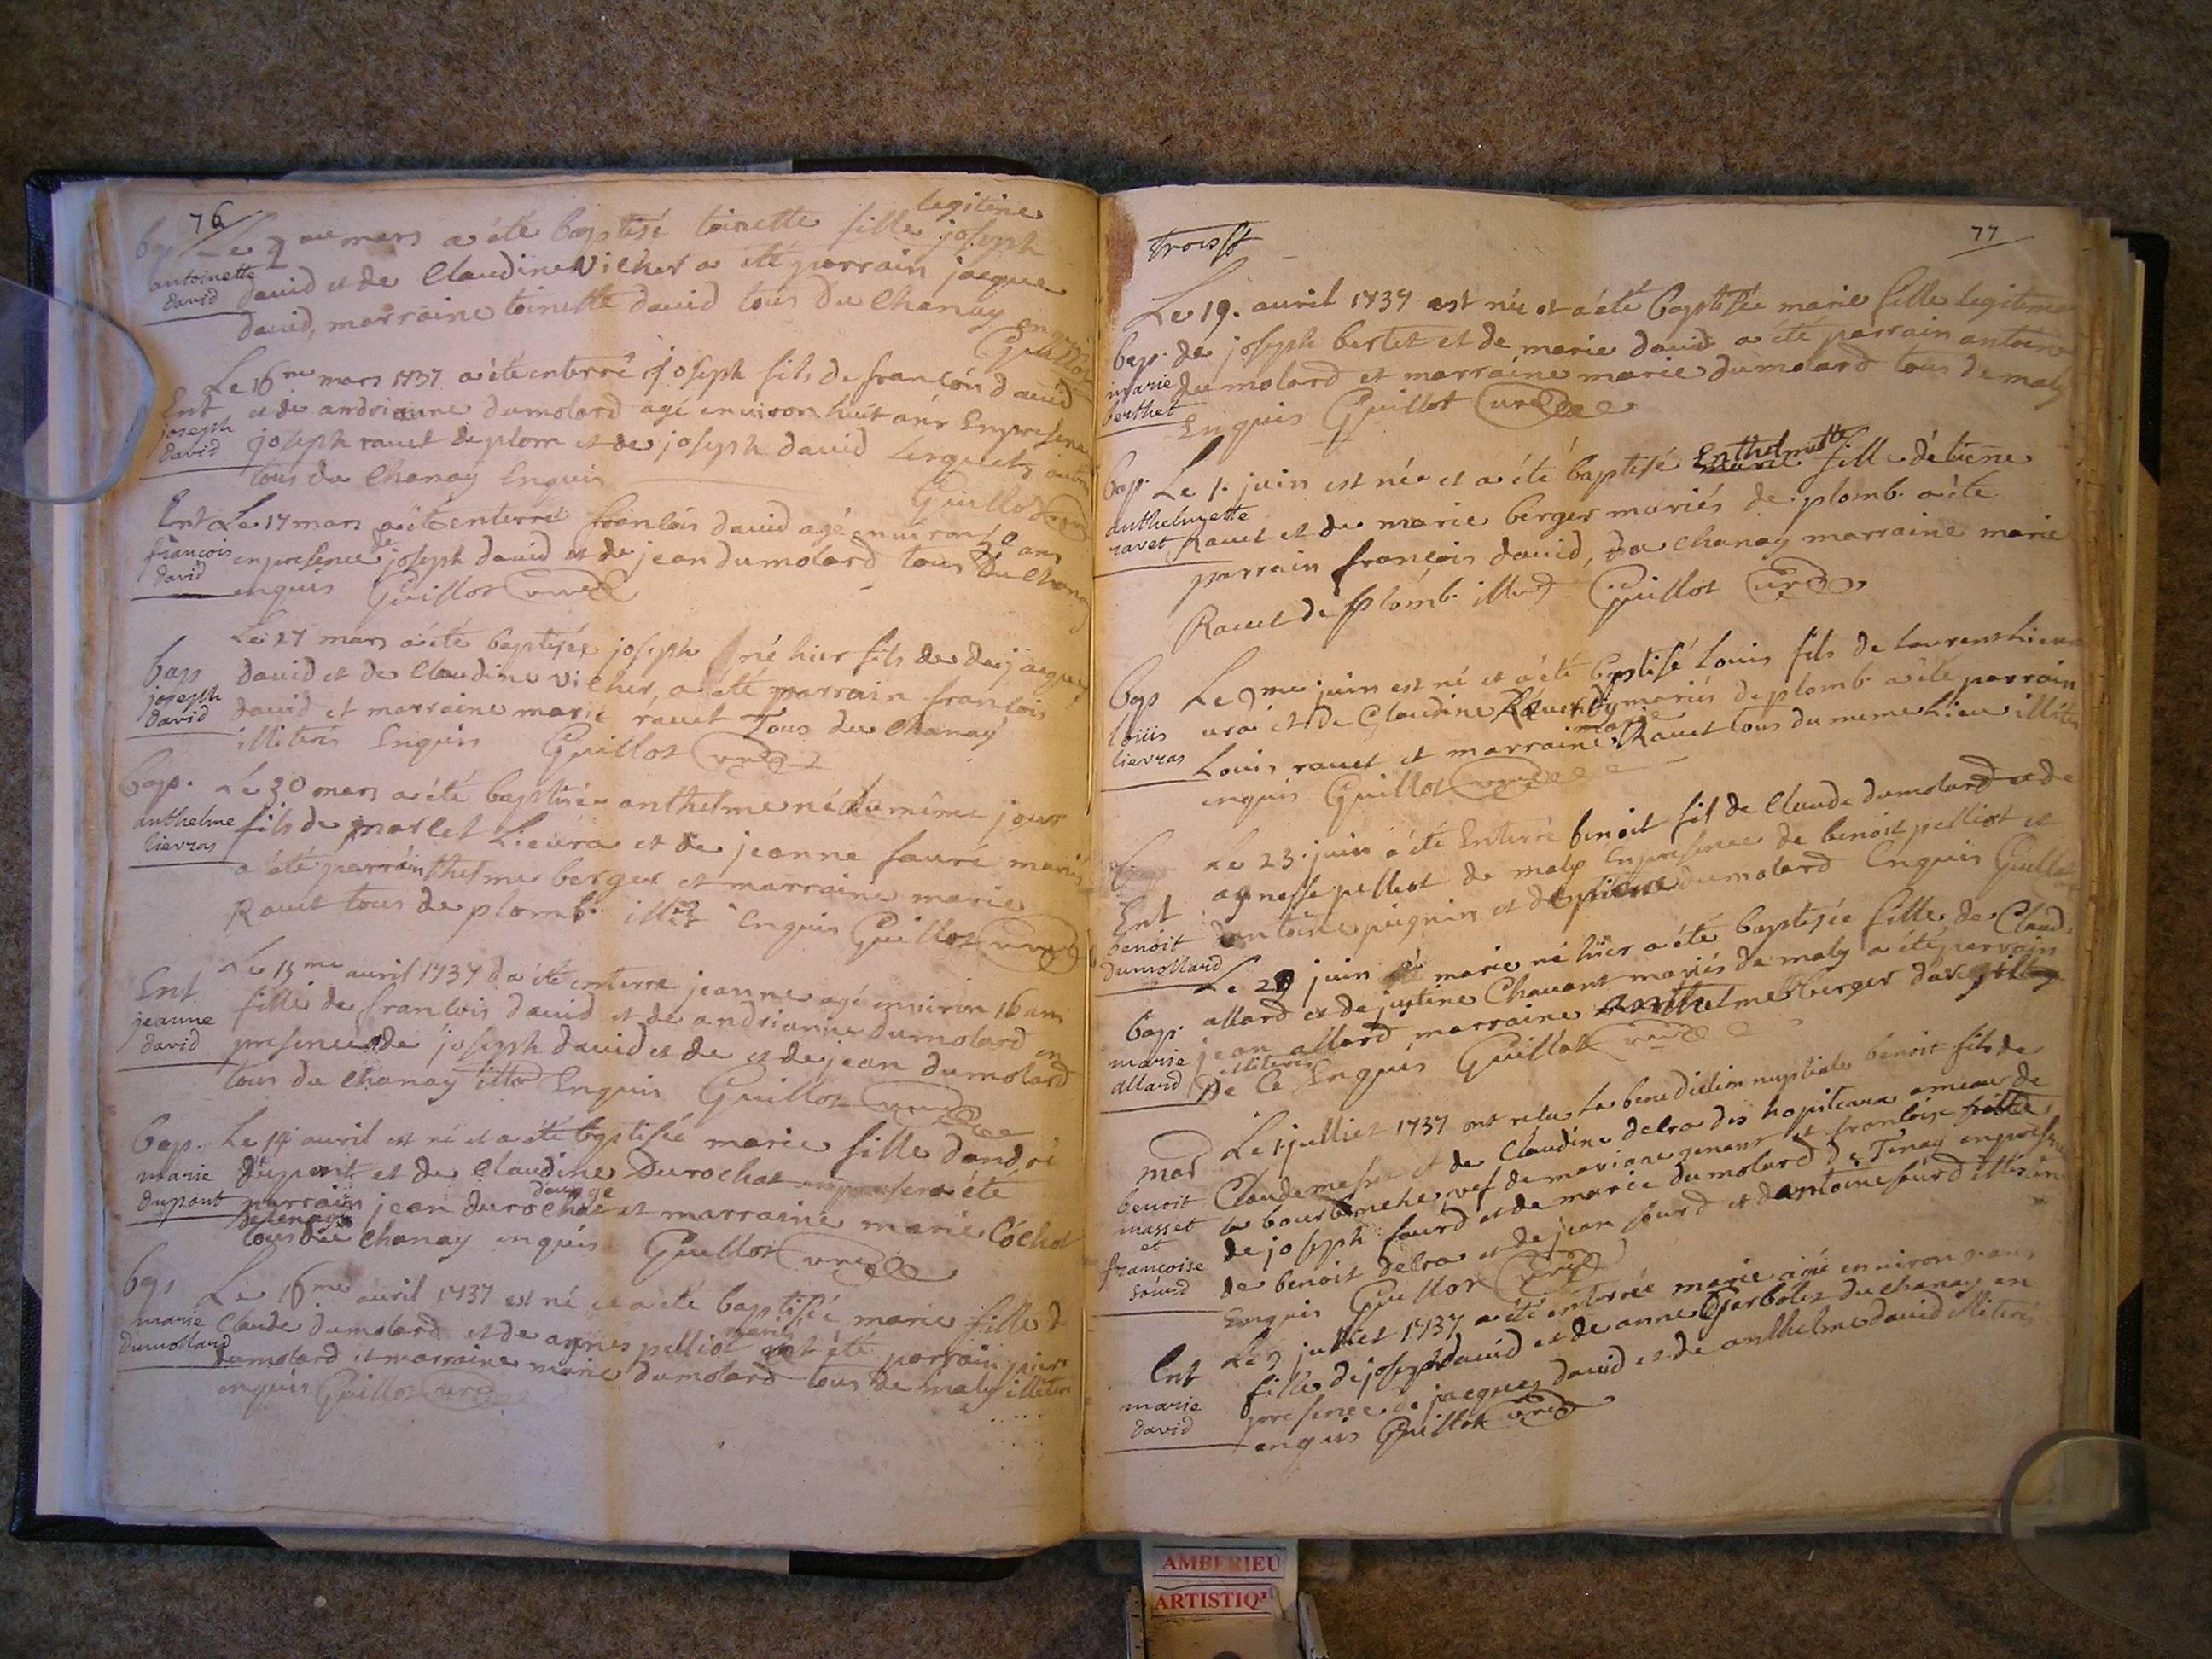 76
legitime
bap Le 7 au mars a été baptisé toinette fille joseph
antoinette david david et de Claudine Vicher a été parrain jacque
david, marraine toinette david tous du Chanay enquis
Guillot
Le 16me mars 1737 a été enterré joseph fils de françois david
Ent joseph david et de andrianne dumolard agé environ huit ans En presence
joseph ravet de plom et de joseph david
tous du Chanay Enquis
Guillot curé
Ent Le 17 mars a été enterré françois david agé environ ans
françois david en presence de joseph david et de jean dumolard tous du Chanay
enquis Guillot curé
Le 27 mars a été baptisée joseph né hier fils de de jacques
bap joseph david david et de Claudine vicher, a été parrain françois
david et marraine marie ravet Tous du Chanay
illiterés Enquis Guillot curé
bap. Le 30 mars a été baptisée anthelme né du même jour
anthelme lievras fils de marcel Lieura et de jeanne fauré mariés
a été parrain thelme berger et marraine marie
Ravet tous de plomb. illit Enquis Guillot curé
Le 15me avril 1737 a été enterre jeanne agé environ 16 ans
Ent jeanne david fille de françois david et de andrianne dumolard en
presence de joseph david et de et de jean dumolard
tous du Chanay illit Enquis Guillot curé
bap. Le 14 avril est né et a été baptisée marie fille dandré
marie dupont dupont et de Claudine Durochat a été
parrain jean durochat et marraine marie Cochot
de tenay
tous du Chanay enquis Guillot curé
bap Le 16me avril 1737 est né et a été baptisée marie fille d
marie dumollard Claude dumolard et de agnes pelliot mariés ont été parrain piere
dumolard et marraine marie dumolard tous de maly illiterés
enquis Guillot curé
77
trois st
Le 19. avril 1737 est née et a été baptisée marie fille legitime
bap. de joseph bertet et de marie david a été parrain antoine
marie berthet dumolard et marraine marie dumolard tous de maly
Enquis Guillot curé
bap. Le 1. juin est née et a été baptisé Enthelmette fille détiene
anthelmette ravet Ravet et de marie berger mariés de plomb. a été
parrain françois david, du chanay marraine marie
Ravet de plomb. illit Guillot curé
bap Le 9me juin est né et a été baptisé Louis fils de Laurent Lieu
louis lievras vra et de Claudine mariés de plomb. a été parrain
Louis ravet et marraine marie Ravet tous du meme Lieu illiterés
enquis Guillot curé
Le 23. juin a été Enterré benoit fil de Claude dumolard et de
Ent benoit dumollard agnesse pelliot de maly En presence de benoit pelliot et
dantoine puignin et de piere dumolard Enquis Guillot
Le 28 juin marie né hier a été baptisée fille de Claude
bap. marie allard allard et de justine Chavant mariés de maly a été parrain
jean allard marraine anthelme berger
illiterés
De Ce Enquis Guillot curé
Le 1 julliet 1737 ont recu La benediction nuptiale benoit fils de
mar Claude maset et de Claudine delra des hopiteaux ameau de
benoit masset et françoise sourd la bourbonche vef de mariane genant et françoise fille
de joseph sourd et de marie dumolard de Tenay en presence
de benoit delra et de jean sourd et dantoine sourd illit
Enquis Guillot curé
Le 9 julliet 1737 a été enterrée marie agé environ 9 ans
Ent marie david fille de joseph david et de anne Gerbolet du chanay en
presence de jacques david et de anthelme david illiterés
enquis Guillot curé
AMBERIEU
ARTISTIQ'